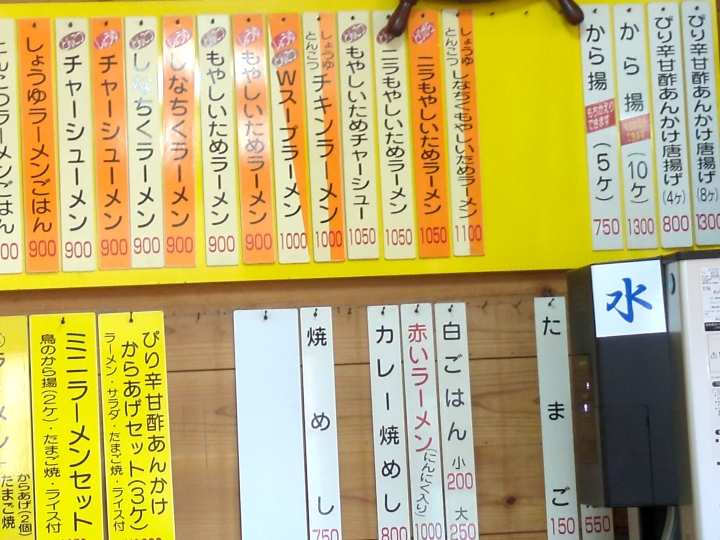 とんこつラーメンごはん
00
しょうゆラーメンごはん
900
とんこつ
チャーシューメン
900
しょうゆ
チャーシューメン
900
とんこつ
しなちくラーメン
900
しょうゆ
しなちくラーメン
900
とんこつ
もやしいためラーメン
900
しょうゆ
もやしいためラーメン
900
しょうゆ
とんこつ
Wスープラーメン
1000
しょうゆ
とんこつ
チキンラーメン
1000
とんこつ
もやしいためチャーシュー
1050
ニラもやしいためラーメン
1050
ニラもやしいためラーメン
1050
しょうゆ
とんこつ
しなちくもやしいためラーメン
1100
から揚
もちかえりできます
(5ヶ)
750
から揚
(10ヶ)
1300
ぴり辛甘酢あんかけ唐揚げ
(4ヶ)
800
ぴり辛甘酢あんかけ唐揚げ
(8ヶ)
1300
ラーメン
からあげ(2個)
たまご焼
ミニラーメンセット
鳥のから揚(2ケ)・たまご焼・ライス付
ぴり辛甘酢あんかけ
からあげセット(3ヶ)
ラーメン・サラダ・たまご焼・ライス付
焼めし
750
カレー焼めし
800
赤いラーメン
(にんにく入り)
1000
白ごはん
小
200
大
250
たまご
150
550
水